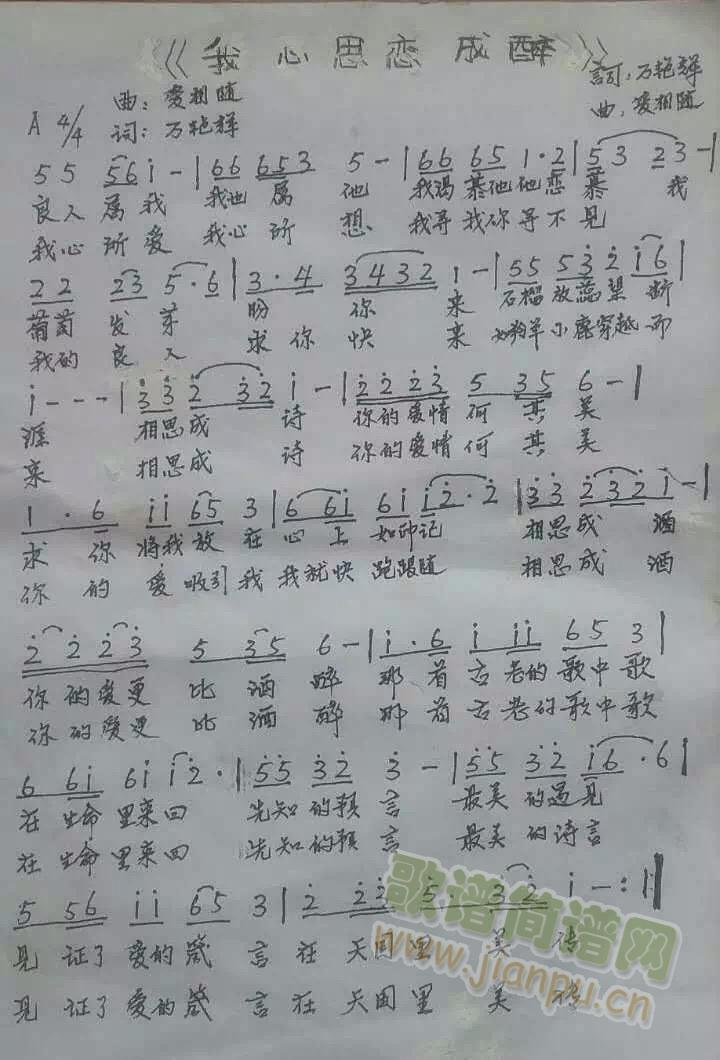 《我心思恋成醉》
曲：爱相随
词：万艳辉
A 4/4
詞：万艳辉
曲：爱相随
5 5 5 6 i - | 6 6 6 5 3 5 - | 6 6 6 5 1 · 2 | 5 3 2 3 - |
良人属我 我也属他 我渴慕他他恋慕 我
我心所爱 我心所想 我寻我你寻不见
2 2 2 3 5 · 6 | 3 · 4 3 4 3 2 1 - | 5 5 5 3 2 i 6 |
葡萄发芽 盼你来 石榴放蕊
我的良人 求你快来 小鹿穿越而
i - - - | 3 3 2 3 2 i - | 2 2 2 3 5 3 5 6 - |
涯 相思成诗 你的爱情何其美
来 相思成诗 你的爱情何其美
1 · 6 i i 6 5 3 | 6 6 i 6 i i 2 · 2 | 3 3 2 3 2 i - |
求你将我放在心上如印记 相思成酒
你的爱吸引我我就快跑跟随 相思成酒
2 2 2 3 5 3 5 6 - | i · 6 i i i 6 5 3 |
你的爱更比酒醉 那首古老的歌中歌
你的爱更比酒醉 那首古老的歌中歌
6 6 i 6 i i 2 · | 5 5 3 2 3 - | 5 5 3 2 i 6 · 6 |
在生命里来回 先知的预言 最美的遇见
在生命里来回 先知的预言 最美的诗言
5 5 6 i i 6 5 3 | 2 2 2 5 · 3 2 i - :||
见证了爱的箴言在天国里 美传
见证了爱的箴言在天国里 美传
歌谱简谱网
www.jianpu.cn